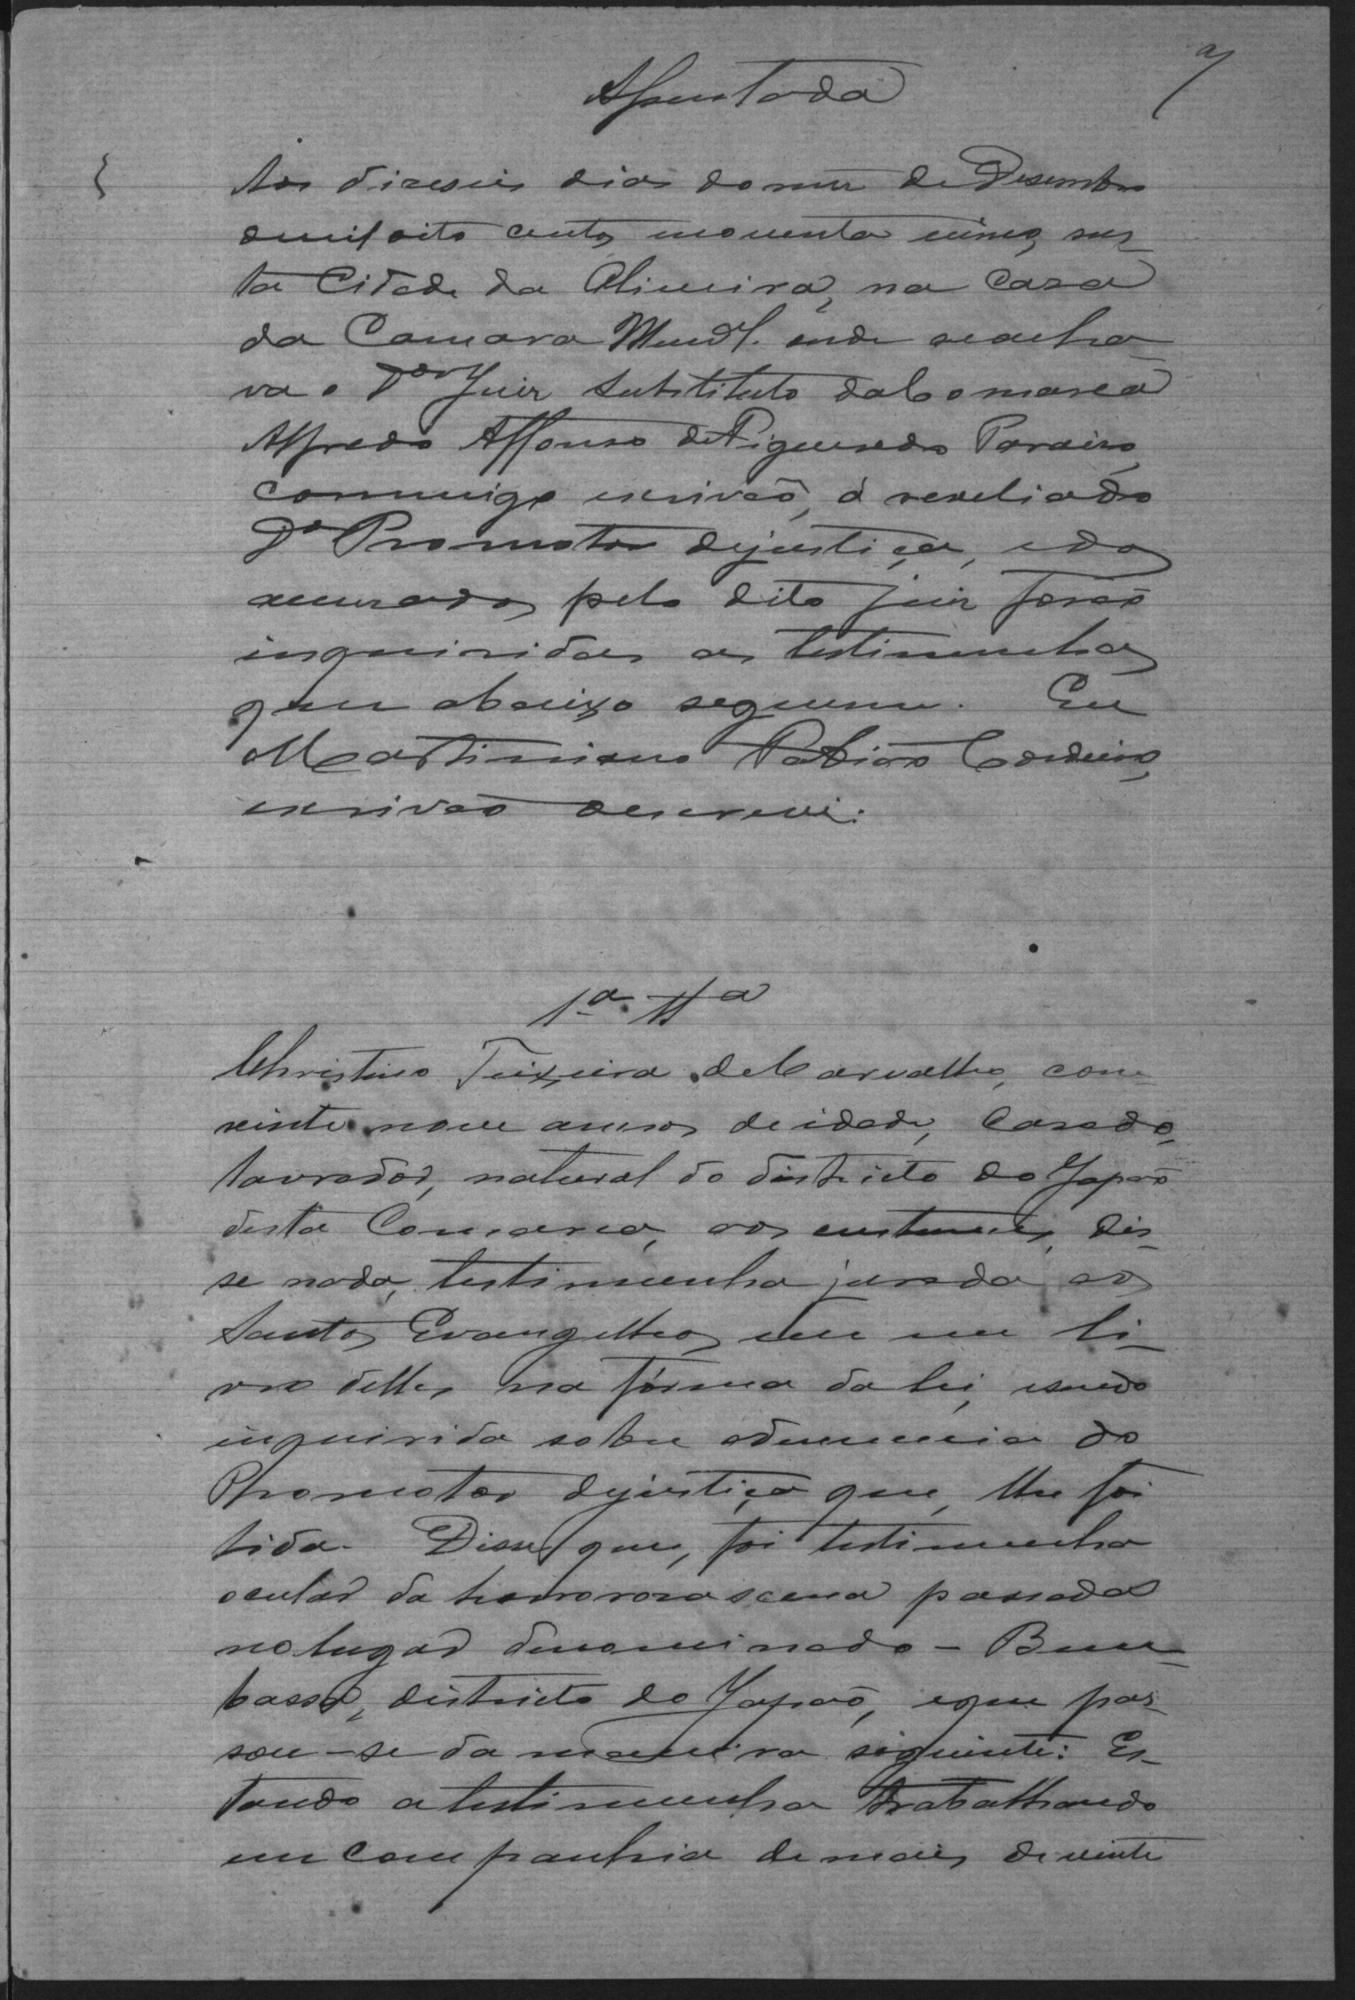 Assentada
Aos dizeseis dias do mez de Desembro
de mil oito centos noventa e cinco, nes-
ta Cidade da Alimeira, na caza
da Camara Mun.al onde se acha-
va o Dor Juiz Substituto da Comarca
Alfredo Affonso de Figueredo Paraizo,
commigo escrivão, á revelia do
Dr Promotor de justiça, e dos
accusados, pelo dito juiz forão
inquiridas as testimunhas
que abaixo seguem. Eu
Martiniano Cordeiro,
escrivão o escrevi.
1a Tta
Christino Teixeira de Carvalho, com
vinte nove annos de idade, casado,
lavrador, natural do districto do Japão
desta Comarca, aos custumes, dis-
se nada, testimunha jurada aos
Santos Evangelhos em um li-
vro delles na fórma da lei, e sendo
inquirida sobre a denuncia do
Promotor de justiça que, lhe foi
lida. Disse que, foi testimunha
ocular da horrorosa scena passada
no lugar denominado - Bum-
bassa, districto do Japão, e que pas-
sou-se da maneira siguinte: Es-
tando a testimunha trabalhando
em companhia de mais de vinte